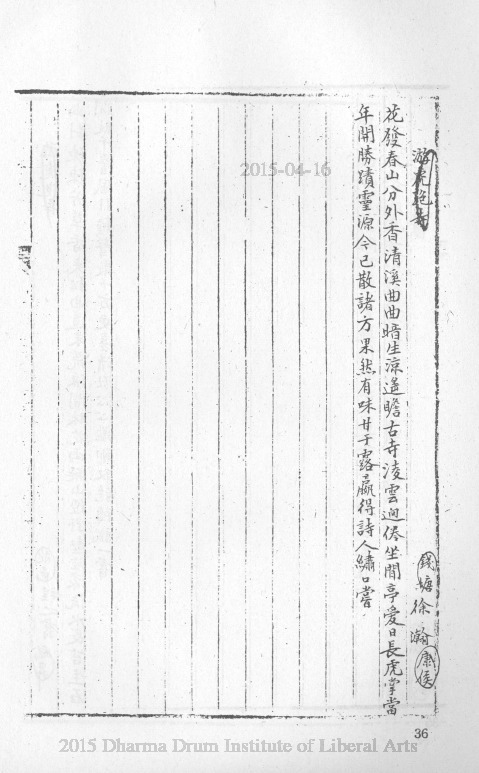 游虎跑寺
錢塘徐瀚康侯
花發春山分外香清溪曲曲暗生涼遥瞻古寺淩雲迥倦坐閒亭愛日長虎掌當
年開勝蹟靈源今已散諸方果然有味甘于露贏得詩人繡口嘗
2015-04-16
36
2015 Dharma Drum Institute of Liberal Arts